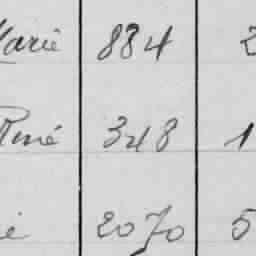 Marie 884 2
René 348 1
2070 5